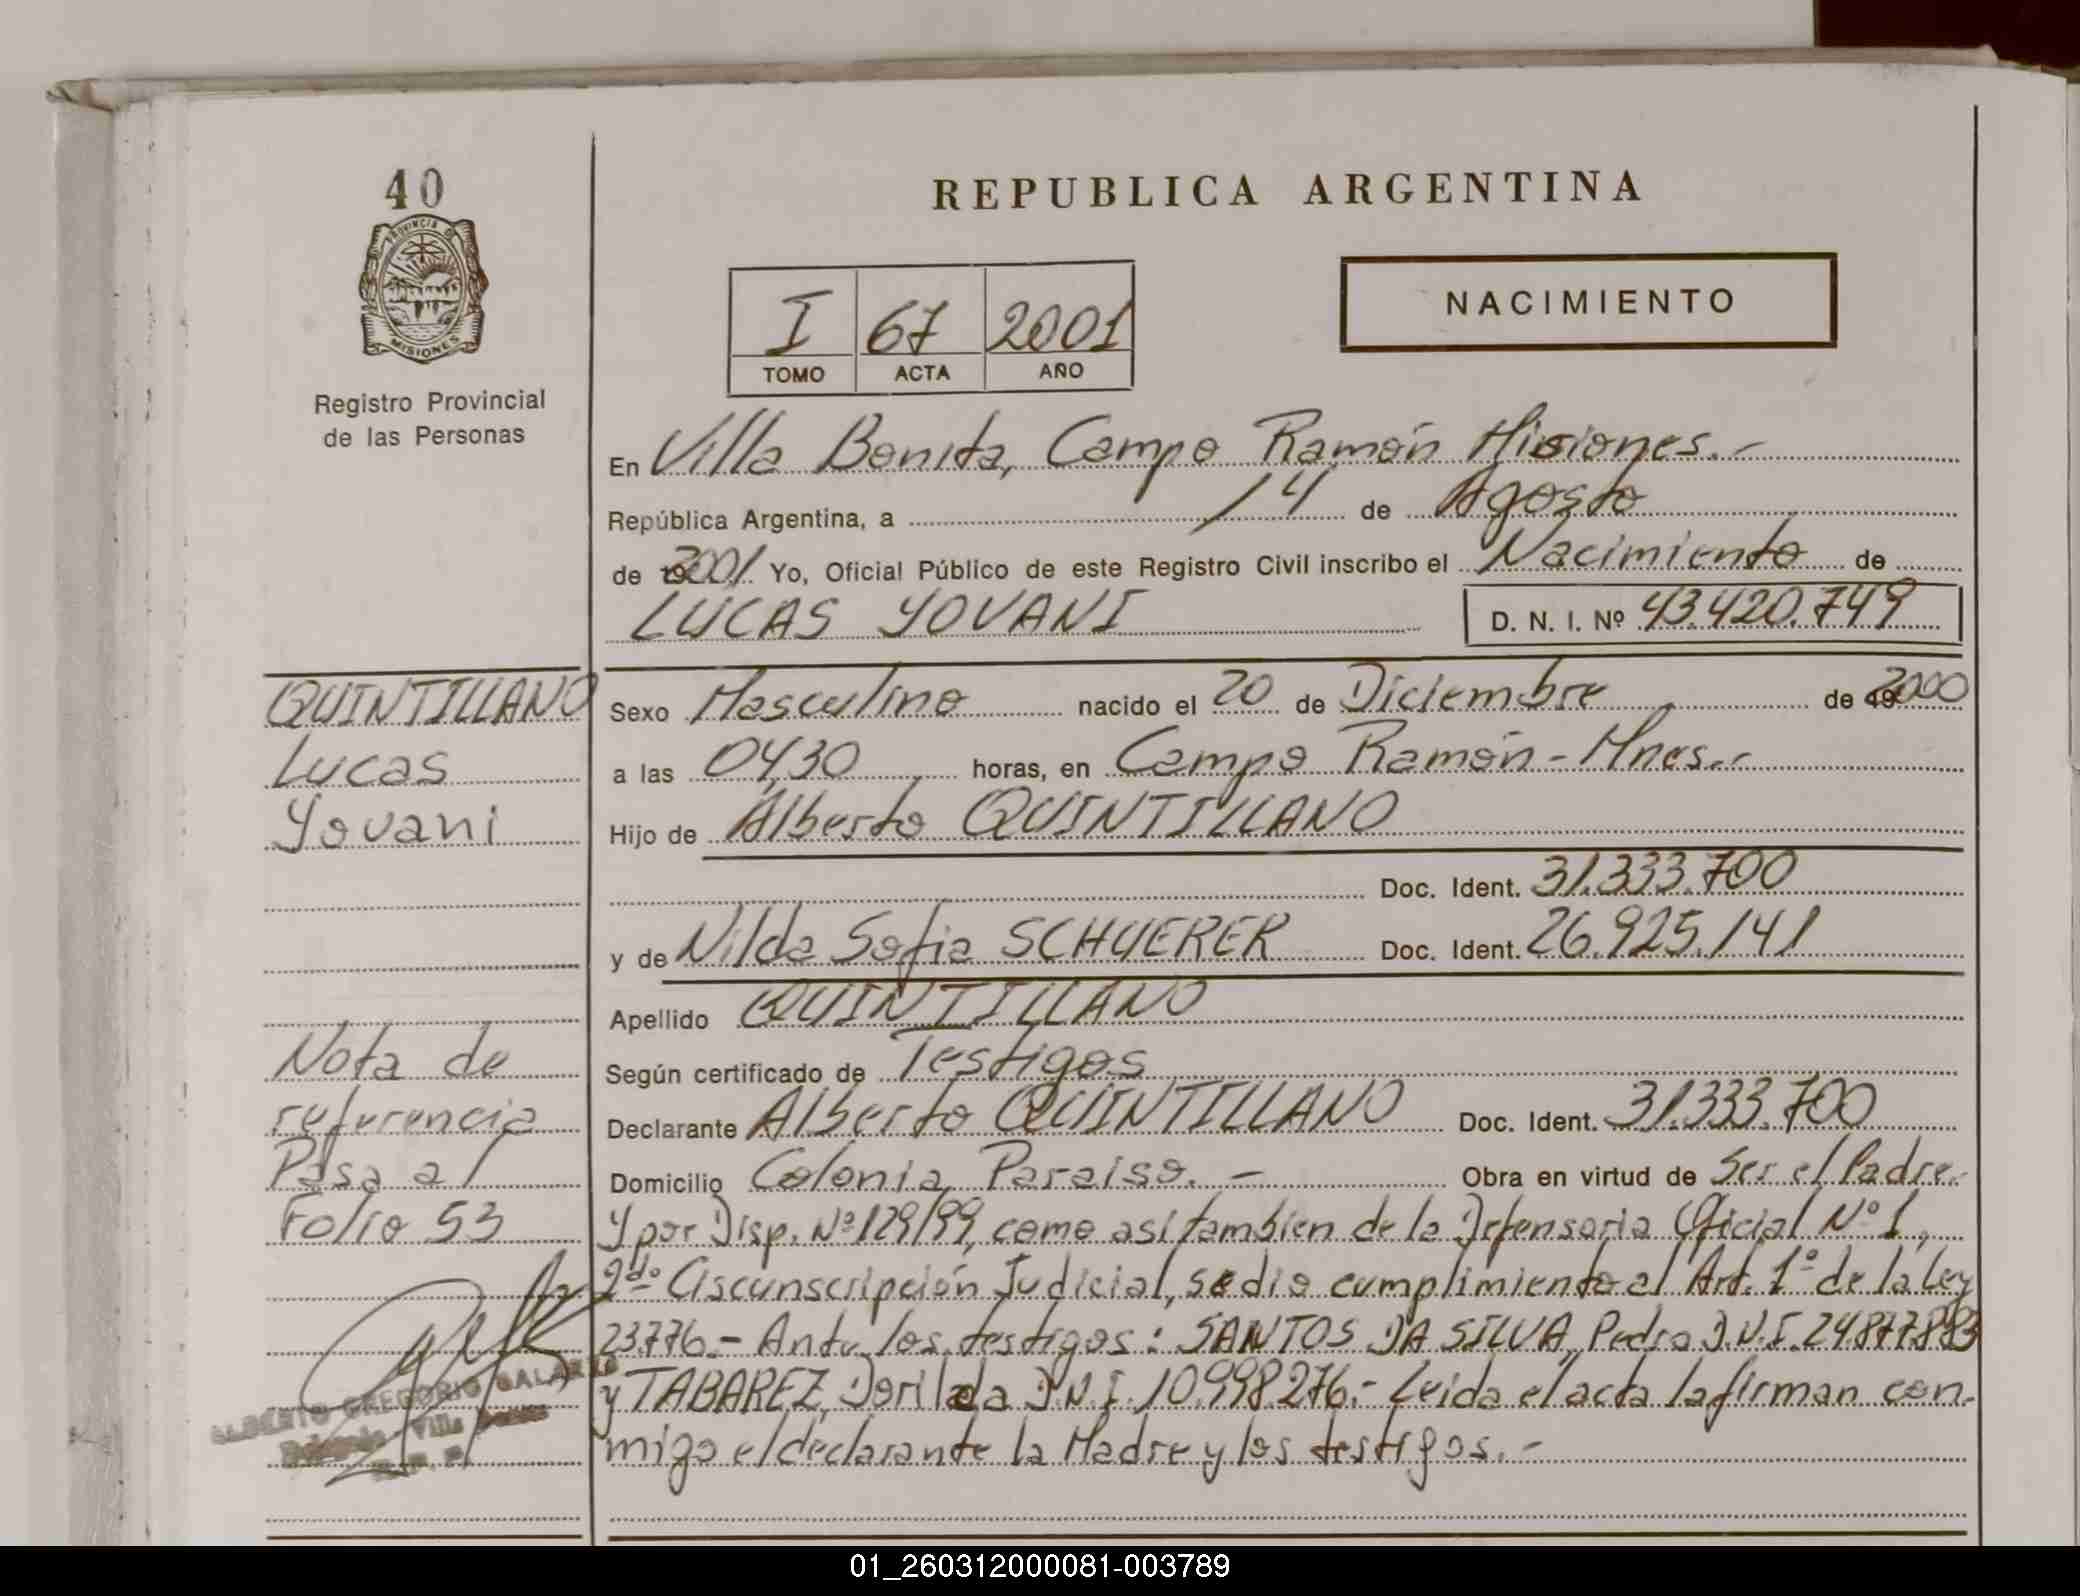 40
PROVINCIA DE
MISIONES
Registro Provincial
de las Personas
REPUBLICA ARGENTINA
NACIMIENTO
I 67 2001
TOMO ACTA AÑO
En Villa Bonita, Campo Ramón Misiones.-
República Argentina, a 14 de Agosto
de 2001 Yo, Oficial Público de este Registro Civil inscribo el Nacimiento de
LUCAS YOVANI D. N. I. Nº 43.420.749
QUINTILLANO
Lucas
Yovani
Sexo Masculino nacido el 20 de Diciembre de 2000
a las 04,30 horas, en Campo Ramón - Mnes.-
Hijo de Alberto QUINTILLANO
Doc. Ident. 31.333.700
y de Nilda Sofia SCHYERER Doc. Ident. 26.925.141
Apellido QUINTILLANO
Según certificado de Testigos
Declarante Alberto QUINTILLANO Doc. Ident. 31.333.700
Domicilio Colonia Paraiso.- Obra en virtud de Ser el Padre.-
Y por Disp. Nº 129/99, como asi tambien de la Defensoria Oficial Nº 1,
2do Circunscripción Judicial, se dio cumplimiento al Art. 1º de la Ley
23.776.- Ante los testigos: SANTOS DA SILVA, Pedro D.N.I. 24.877.883
y TABAREZ, Dorilda D.N.I. 10.998.276.- Leida el acta la firman con-
migo el declarante la Madre y los testigos.-
Nota de
referencia
Pasa al
Folio 53
ALBERTO GREGORIO GALARZA
Villa Bonita
01_260312000081-003789